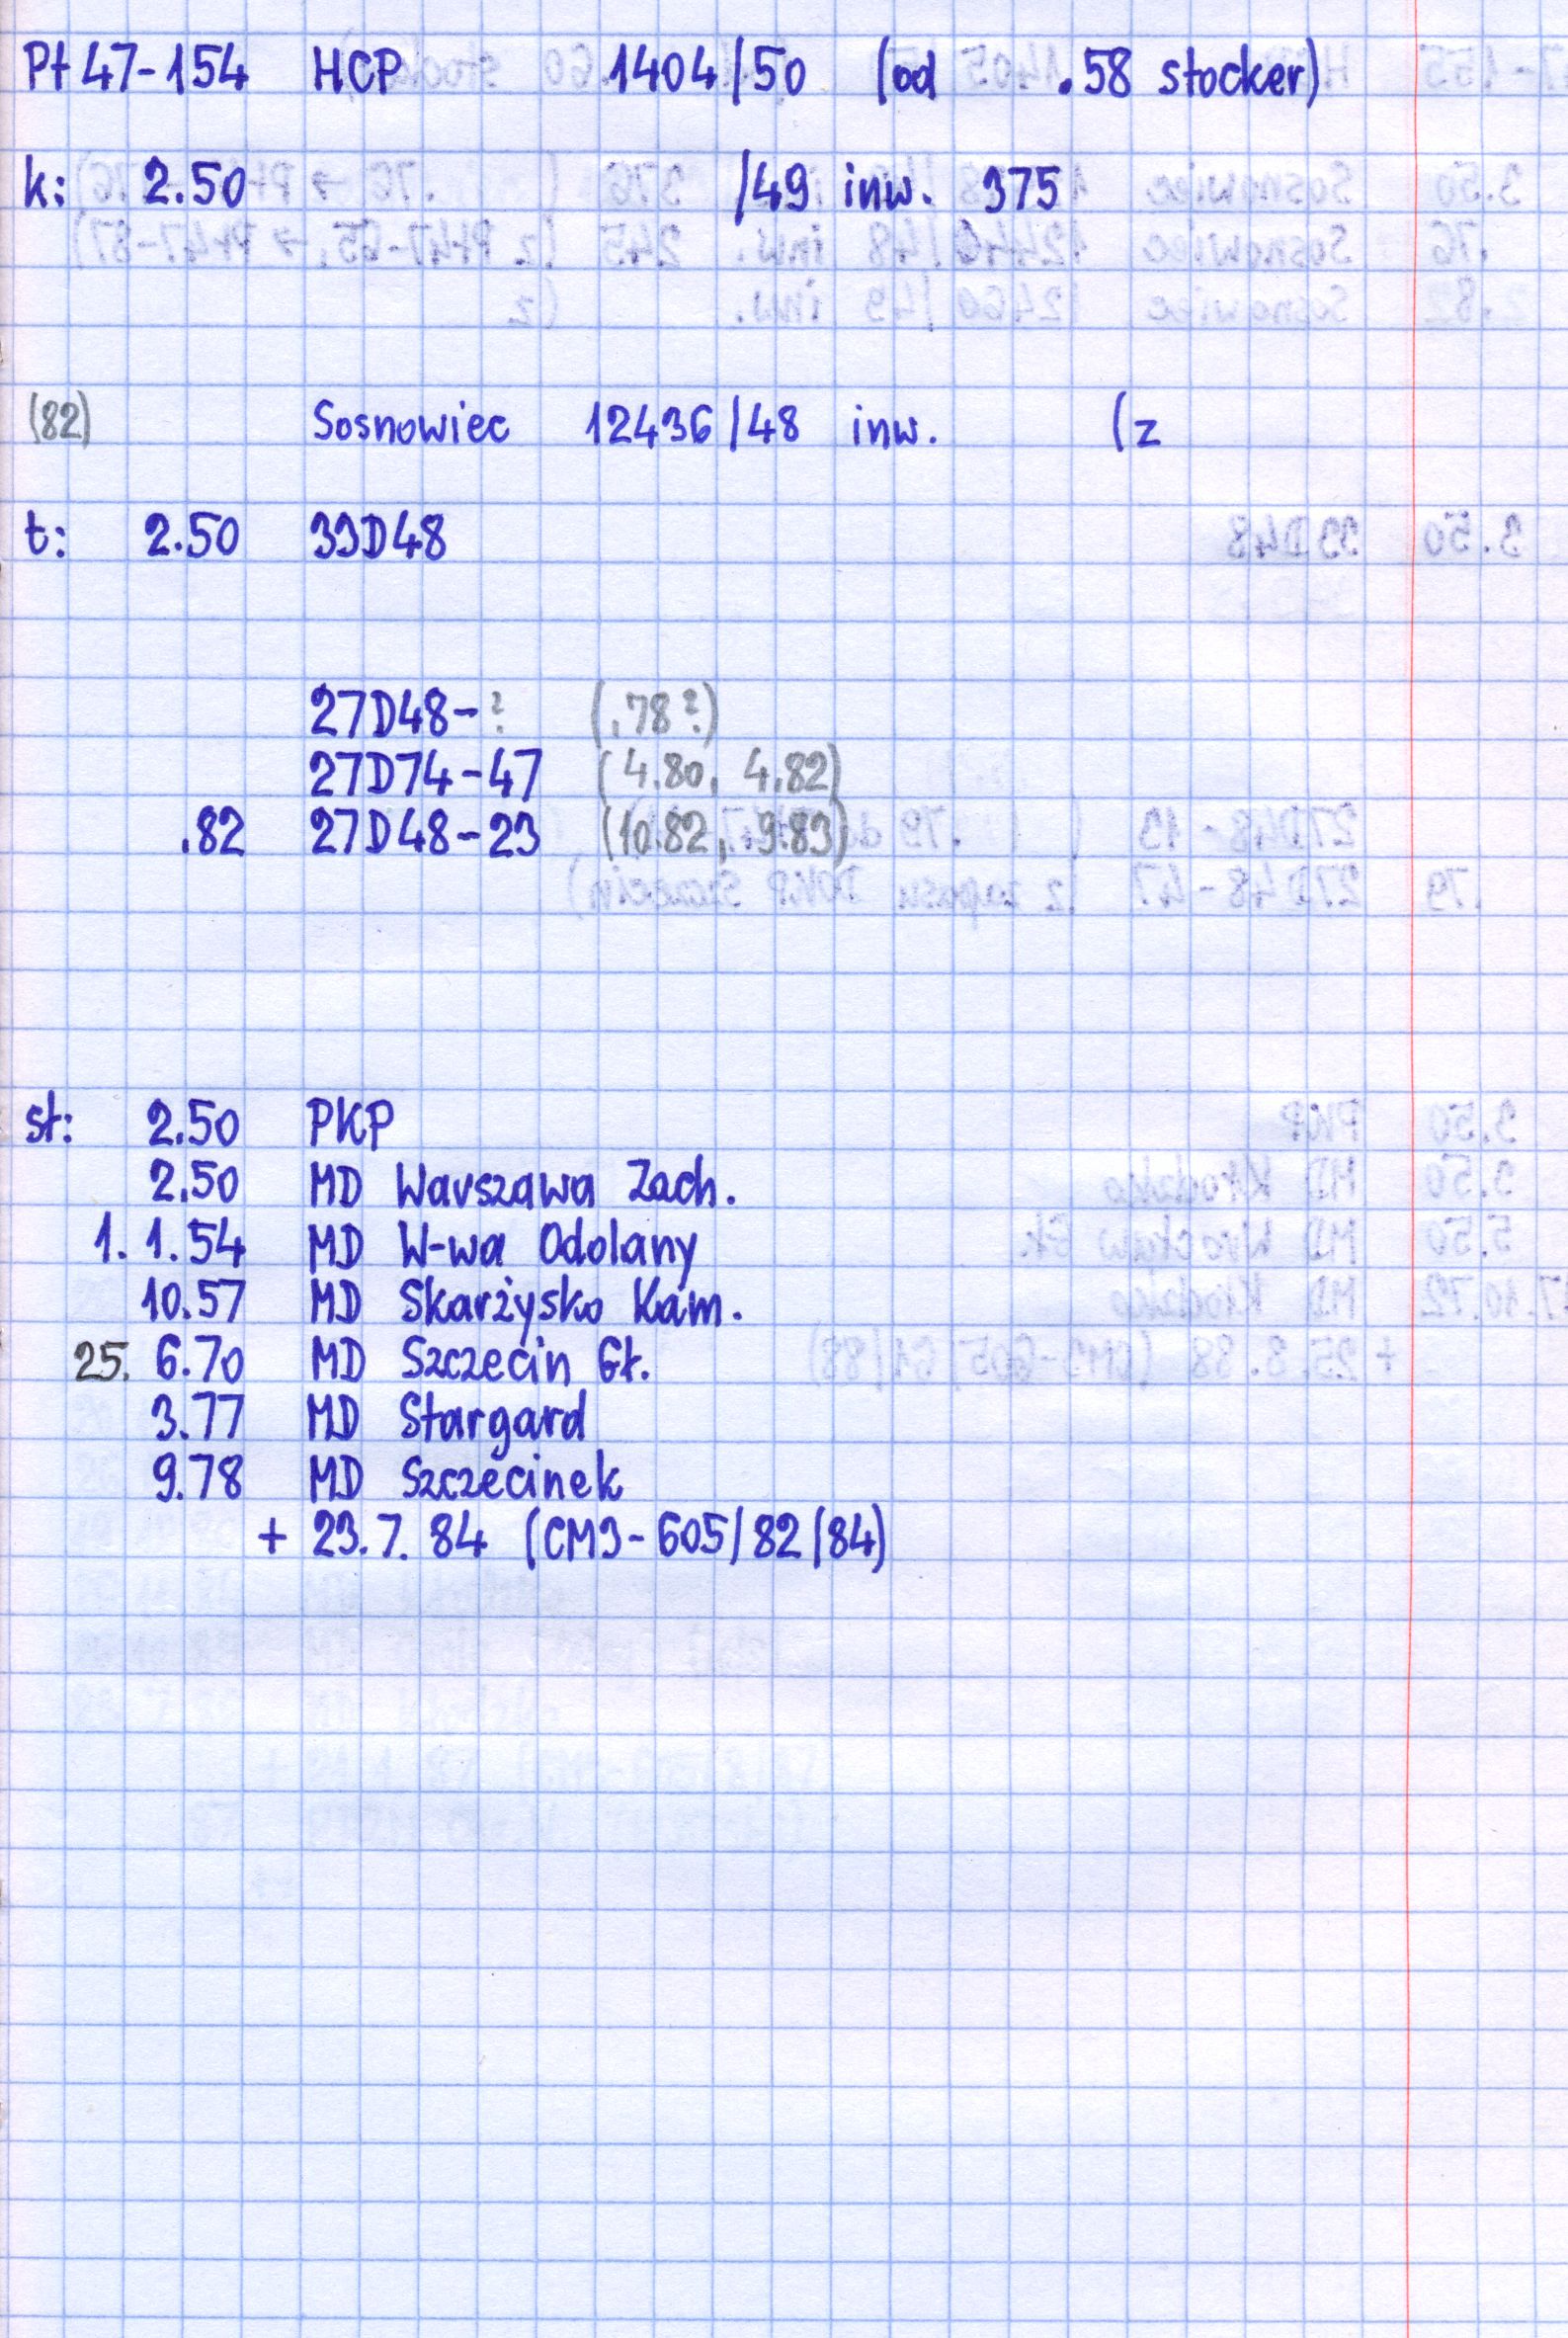 Pt47-154 HCP 1404/50 (od .58 stocker)
k: 2.50 /49 inw. 375
(82) Sosnowiec 12436/48 inw. (z
t: 2.50 33D48
27D48-? (.78?)
27D74-47 (4.80, 4.82)
.82 27D48-23 (10.82, 9.83)
st: 2.50 PKP
2.50 MD Warszawa Zach.
1. 1.54 MD W-wa Odolany
10.57 MD Skarżysko Kam.
25. 6.70 MD Szczecin Gł.
3.77 MD Stargard
9.78 MD Szczecinek
+ 23.7.84 (CM3-605/82/84)